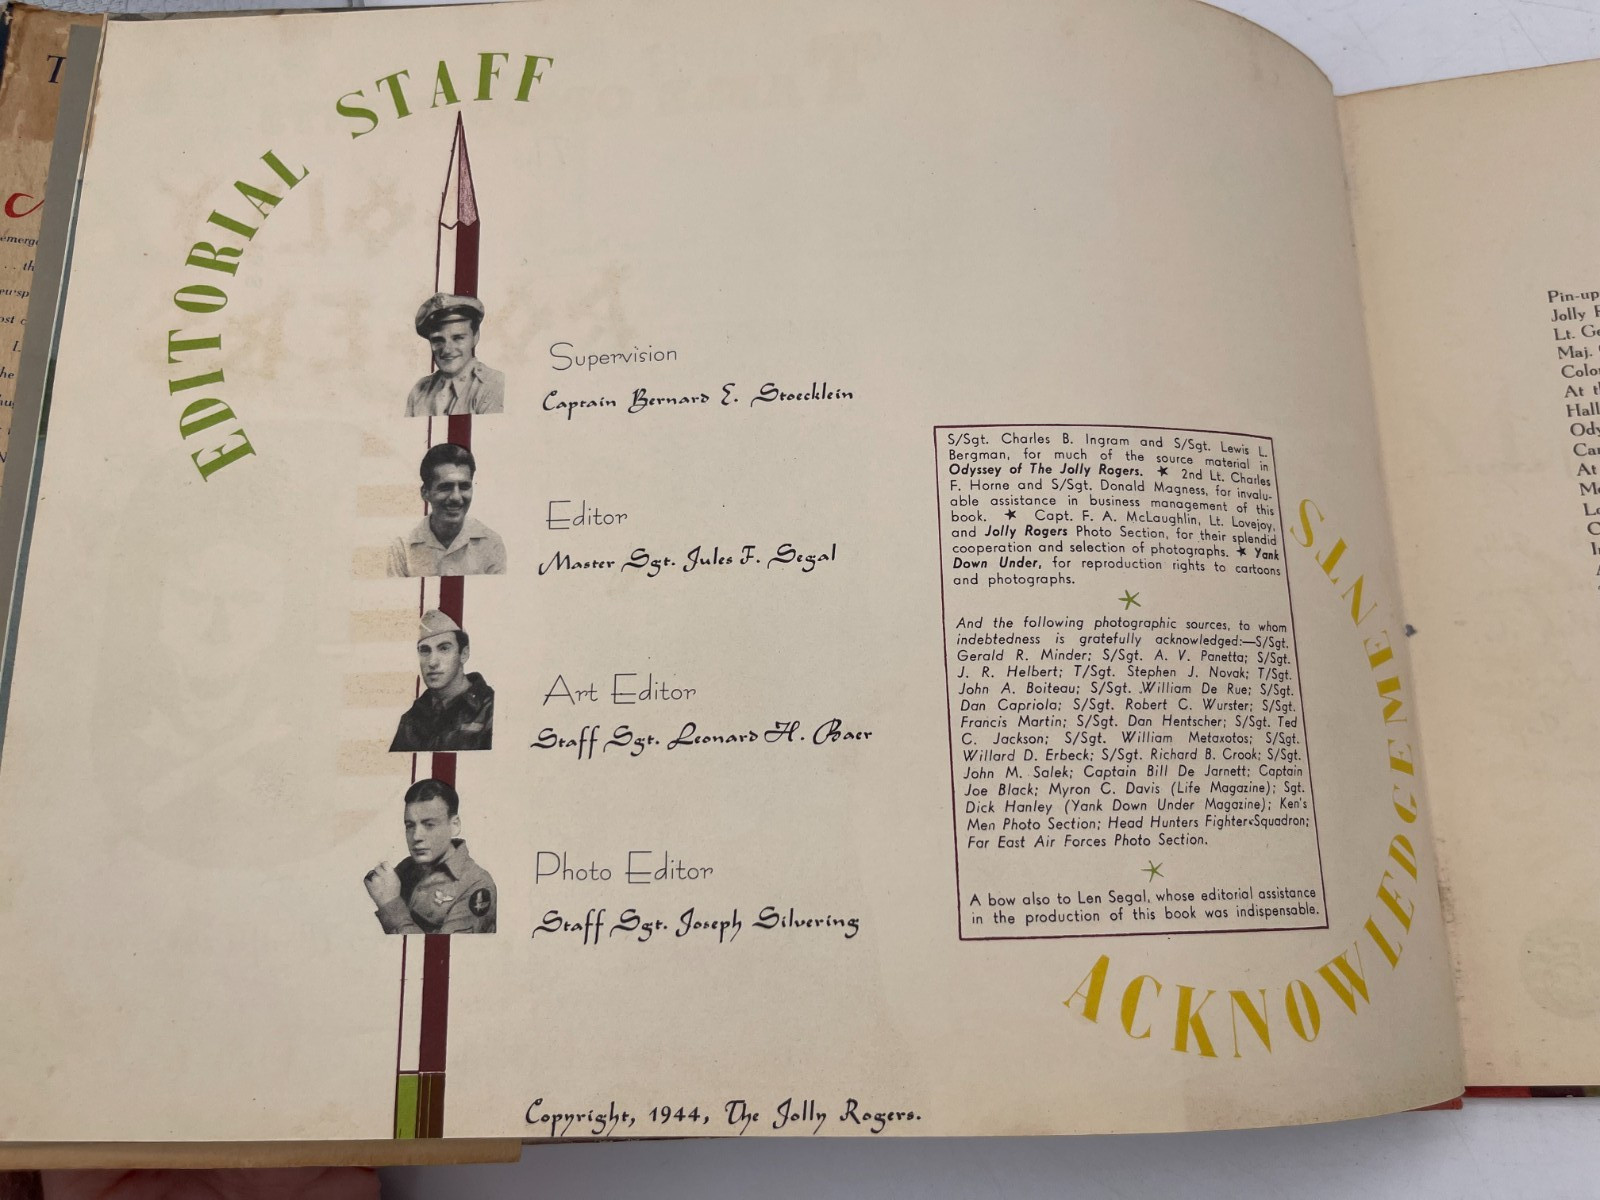 EDITORIAL STAFF
Supervision
Captain Bernard E. Stoecklein
Editor
Master Sgt. Jules F. Segal
Art Editor
Staff Sgt. Leonard H. Baer
Photo Editor
Staff Sgt. Joseph Silvering
Copyright, 1944, The Jolly Rogers.
S/Sgt. Charles B. Ingram and S/Sgt. Lewis L.
Bergman, for much of the source material in
Odyssey of The Jolly Rogers. ★ 2nd Lt. Charles
F. Horne and S/Sgt. Donald Magness, for invalu-
able assistance in business management of this
book. ★ Capt. F. A. McLaughlin, Lt. Lovejoy,
and Jolly Rogers Photo Section, for their splendid
cooperation and selection of photographs. ★ Yank
Down Under, for reproduction rights to cartoons
and photographs.
And the following photographic sources, to whom
indebtedness is gratefully acknowledged:—S/Sgt.
Gerald R. Minder; S/Sgt. A. V. Panetta; S/Sgt.
J. R. Helbert; T/Sgt. Stephen J. Novak; T/Sgt.
John A. Boiteau; S/Sgt. William De Rue; S/Sgt.
Dan Capriola; S/Sgt. Robert C. Wurster; S/Sgt.
Francis Martin; S/Sgt. Dan Hentscher; S/Sgt. Ted
C. Jackson; S/Sgt. William Metaxotos; S/Sgt.
Willard D. Erbeck; S/Sgt. Richard B. Crook; S/Sgt.
John M. Salek; Captain Bill De Jarnett; Captain
Joe Black; Myron C. Davis (Life Magazine); Sgt.
Dick Hanley (Yank Down Under Magazine); Ken's
Men Photo Section; Head Hunters Fighter Squadron;
Far East Air Forces Photo Section.
A bow also to Len Segal, whose editorial assistance
in the production of this book was indispensable.
ACKNOWLEDGEMENTS
Pin-up
Jolly
Lt. Ge
Maj.
Colo
At th
Hall
Ody
Car
At